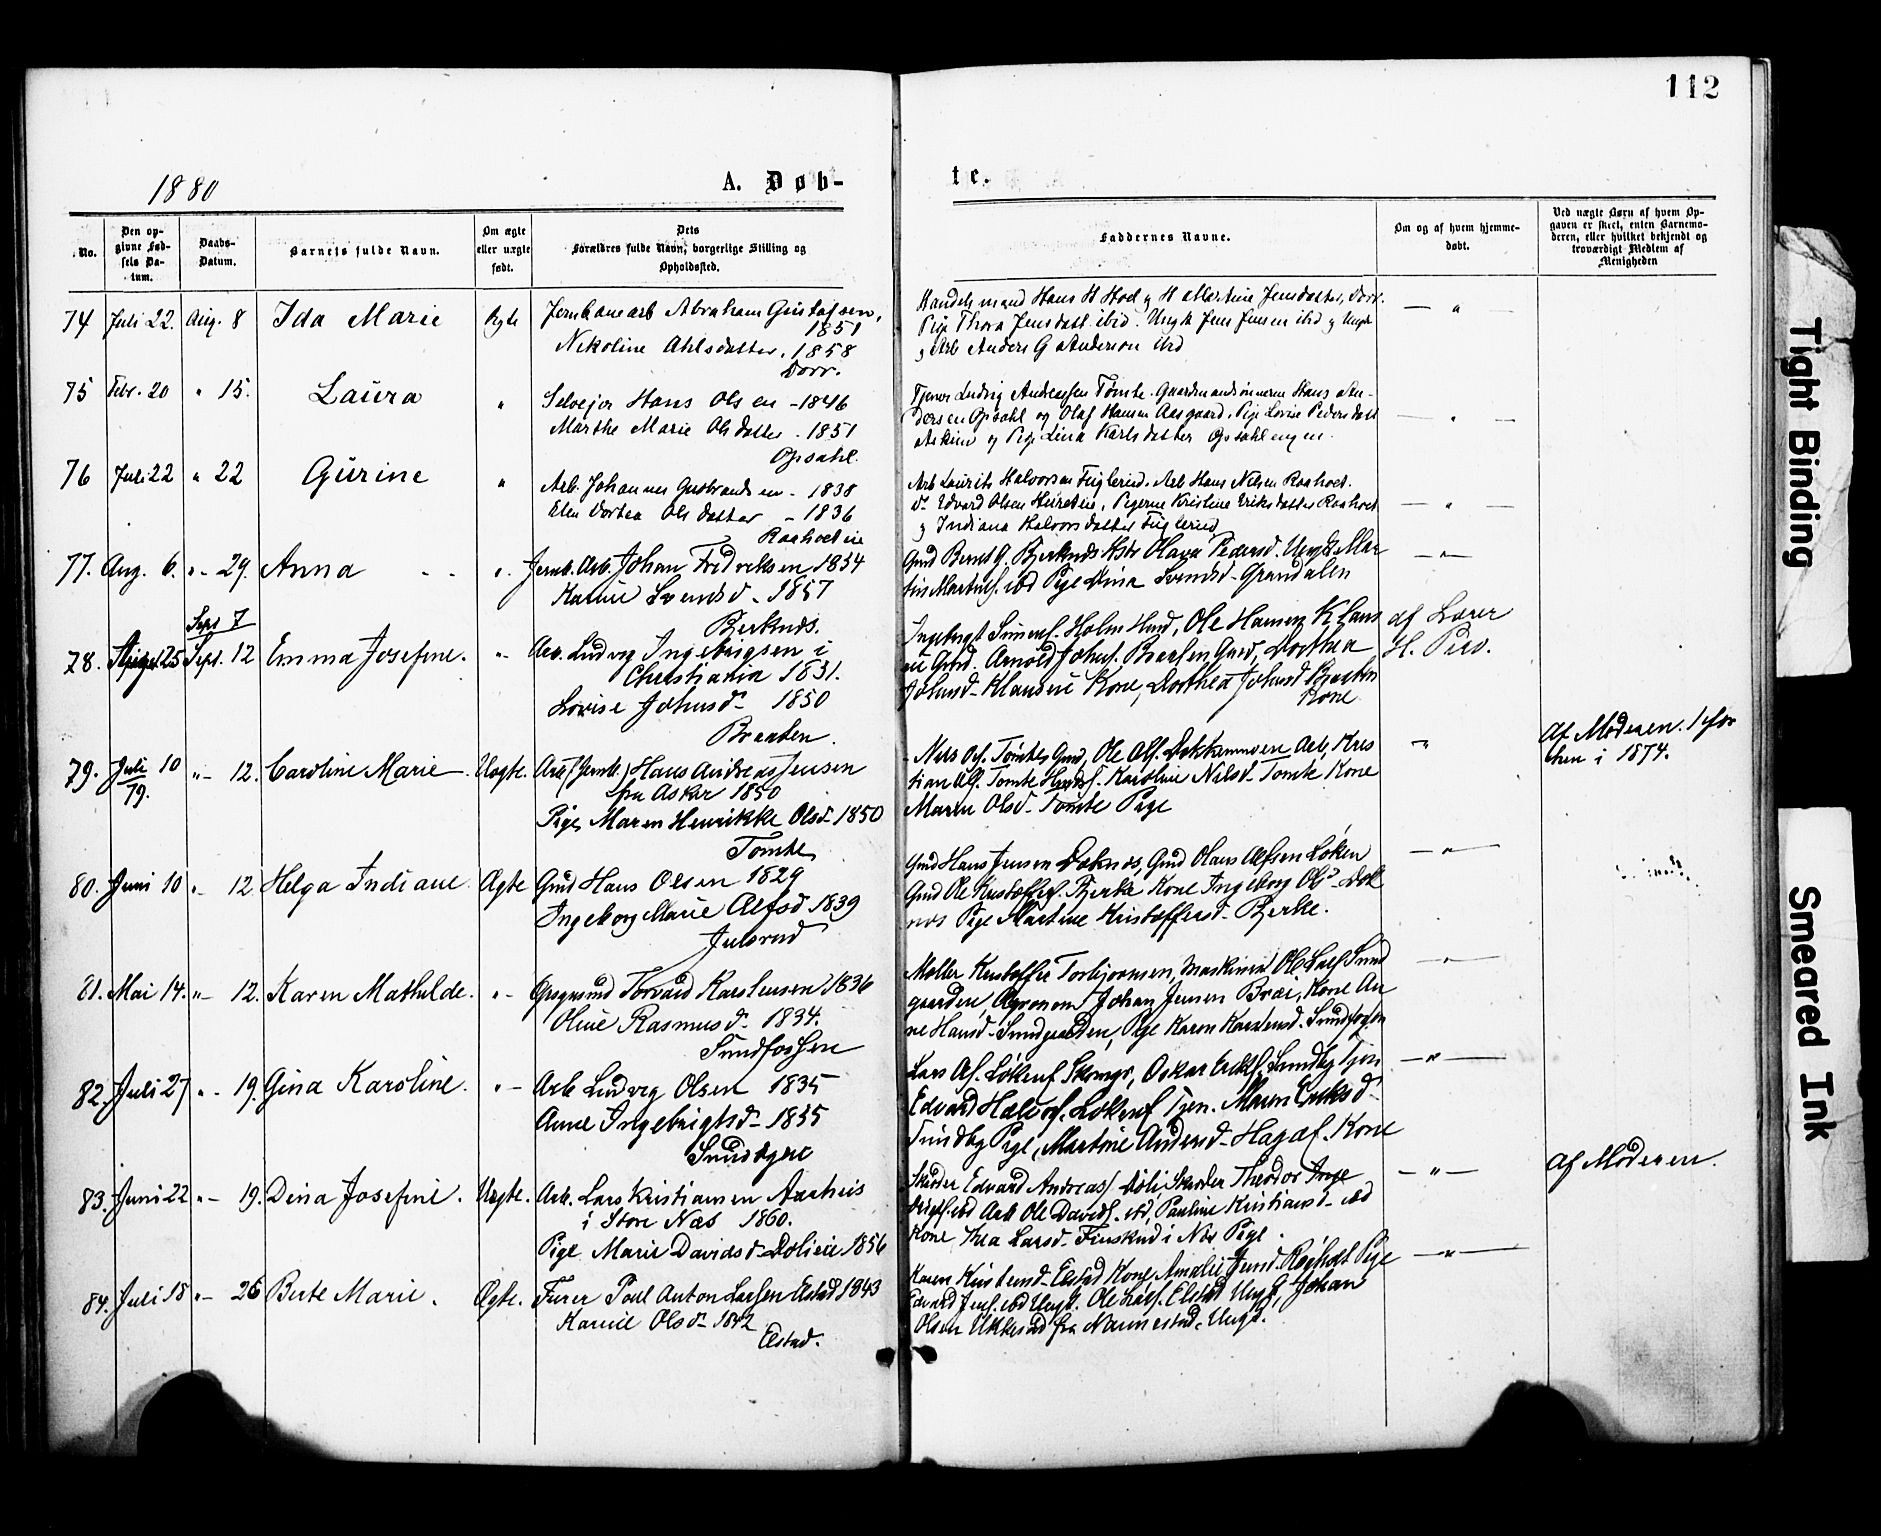 112
1880
A. Døb-
te.
No.
Den op-
givne Fød-
sels Da-
tum.
Daabs-
Datum.
Barnets fulde Navn.
Om ægte
eller uægte
født.
Dets
Forældres fulde Navn, borgerlige Stilling og
Opholdssted.
Faddernes Navne.
Om og af hvem hjemme-
døbt.
Ved uægte Børn af hvem Op-
gaven er skeet, enten Barnemo-
deren, eller hvilket bekjendt og
troværdigt Medlem af
Menigheden
74 Juli 22. Aug. 8 Ida Marie Ægte Jernbanearb Abraham Gustafsen,
1851
Nikoline Ahlsdatter, 1858
Dorr.
Handelsmand Hans H Hoel g H Martine Jensdatter, Dorr.
Pige Thora Jensdatt. ibid. Ungk Jens Jensen ibid g Ungk
g Arb Anders G Anderson ibid
— " —
75 Febr. 20 " 15. Laura " Selveier Hans Olsen - 1846
Marthe Marie Olsdatter . 1851
Opsahl.
Tjener Ludvig Andreassen Tømte. Gaardmandsønnerne Hans An-
dersen Opsahl og Olaf Hansen Aasgaard. Pige Lovise Pedersdatt
Askim g Pige Lina Karlsdatter Opsahleng en.
— " —
76 Juli 22 " 22 Gurine " Arb. Johannes Gulbrandsen - 1838
Elen Dortea Olsdatter - 1836
Raaholtie
Arb Laurits Halvorsen Fuglerud. Arb Hans Nilsen Raaholt.
do Edvard Olsen . Pigerne Kristine Eriksdatter Raaholt
g Indiana Halvorsdatter Fuglerud
— " —
77. Aug. 6. " - 29. Anna - - ". Jernb. Arb. Johan Fredriksen 1854
Karine Svendsd - 1857
Bjerknds.
Gmd Bernt G. Bjerknds Hstr Olava Pedersd. Ungk Mar
tin Martins. ibd Pige Dina Svendsd - Grandalen
— " —
Sept 7
78. 25 Sept. 12 Emma Josefine. " - Arb. Ludvig Ingebrigsen i
Christiania 1831.
Lovise Johnsd - 1850
Braaten.
Ingebregt Simens. Holm Hmd, Ole Hansen Klaus
eie Gmd. Arnold Johns. Braaten Gmd, Dorthea
Johnsd - Klauseie Kone, Dorthea Johnsd Braaten
Kone.
af Lærer
H.
79. Juli 10
79.
" - 12. Caroline Marie. Uægte. Arb (Jernb.) Hans Andreas Jensen
fra Asker 1850
Pige Maren Henrikke Olsd - 1850
Tomte
Nils Ols. Tømte Gmd, Ole Ols. Arb, Kris
tian Ols. Tomte . Karoline Nilsd - Tomte Kone
Maren Olsd - Tomte Pige
— " —
Af Moderen.
i 1874.
80. Juni 10 " - 12 Helga Indiane. Ægte Gmd Hans Olsen 1829
Ingeborg Marie Alfsd 1839
Julsrud
Gmd Hans Jensen Doknes, Gmd Olaus Alfsen Løken
Gmd Ole Kristoffers. Bjerke Kone Ingeborg Olsd - Dok
nes Pige Martine Kristoffersd - Bjerke.
— " —
81. Mai 14. " - 12. Karen Mathilde. " - Opsynsmd Torvard Karstensen 1836
Oline Rasmusd - 1834.
Sundfossen
Møller Kristoffer Torbjørnsen, Maskinist Ole Lars. Sund
gaarden, Agronom Johan Jensen Bræi, Kone An
ne Hansd - Sundgaarden, Pige Karen Karstensd - Sundfossen
— " —
82. Juli 27 " - 19. Gina Karoline. " - Arb Ludvig Olsen 1835
Anne Ingebrigtsd - 1835
Sundbyeie
Lars Ols. Løken , Oskar Eriks. Sundby Tjen
Edvard Halvors. Løken Tjen. Maren Eriksd -
Sundby Pige, Martine Andersd - Haga Kone
— " —
83. Juni 22 " - 19. Dina Josefine. Uægte. Arb. Lars Kristiansen Aarheis
i Store Næs 1860.
Pige Marie Davidsd - Dølieie 1856
Skræder Edvard Andreas/ Døli, Skræder Theodor Inge
ibd Arb Ole Davids. ibd, Pauline Kristiansd - ibd
Kone Thea Larsd - Finskud i Næs Pige.
— " —
Af Moderen.
84. Juli 18 " - 26 Berte Marie. Ægte. Furer Poul Anton Larsen Elstad 1843
Karine Olsd - 1842
Elstad.
Karen Kristensd - Elstad Kone, Amalie Jensd - Raaholt Pige
Edvard Jens. ibd Ungk. Ole Lars. Elstad Ungk, Johan
Olsen Ukkestad fra Nannestad - Ungk.
— " —
Tight Binding
Smeared Ink